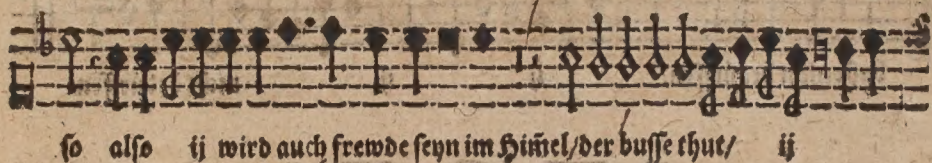 so also ij wird auch frewde seyn im Him̃el/der busse thut/ ij